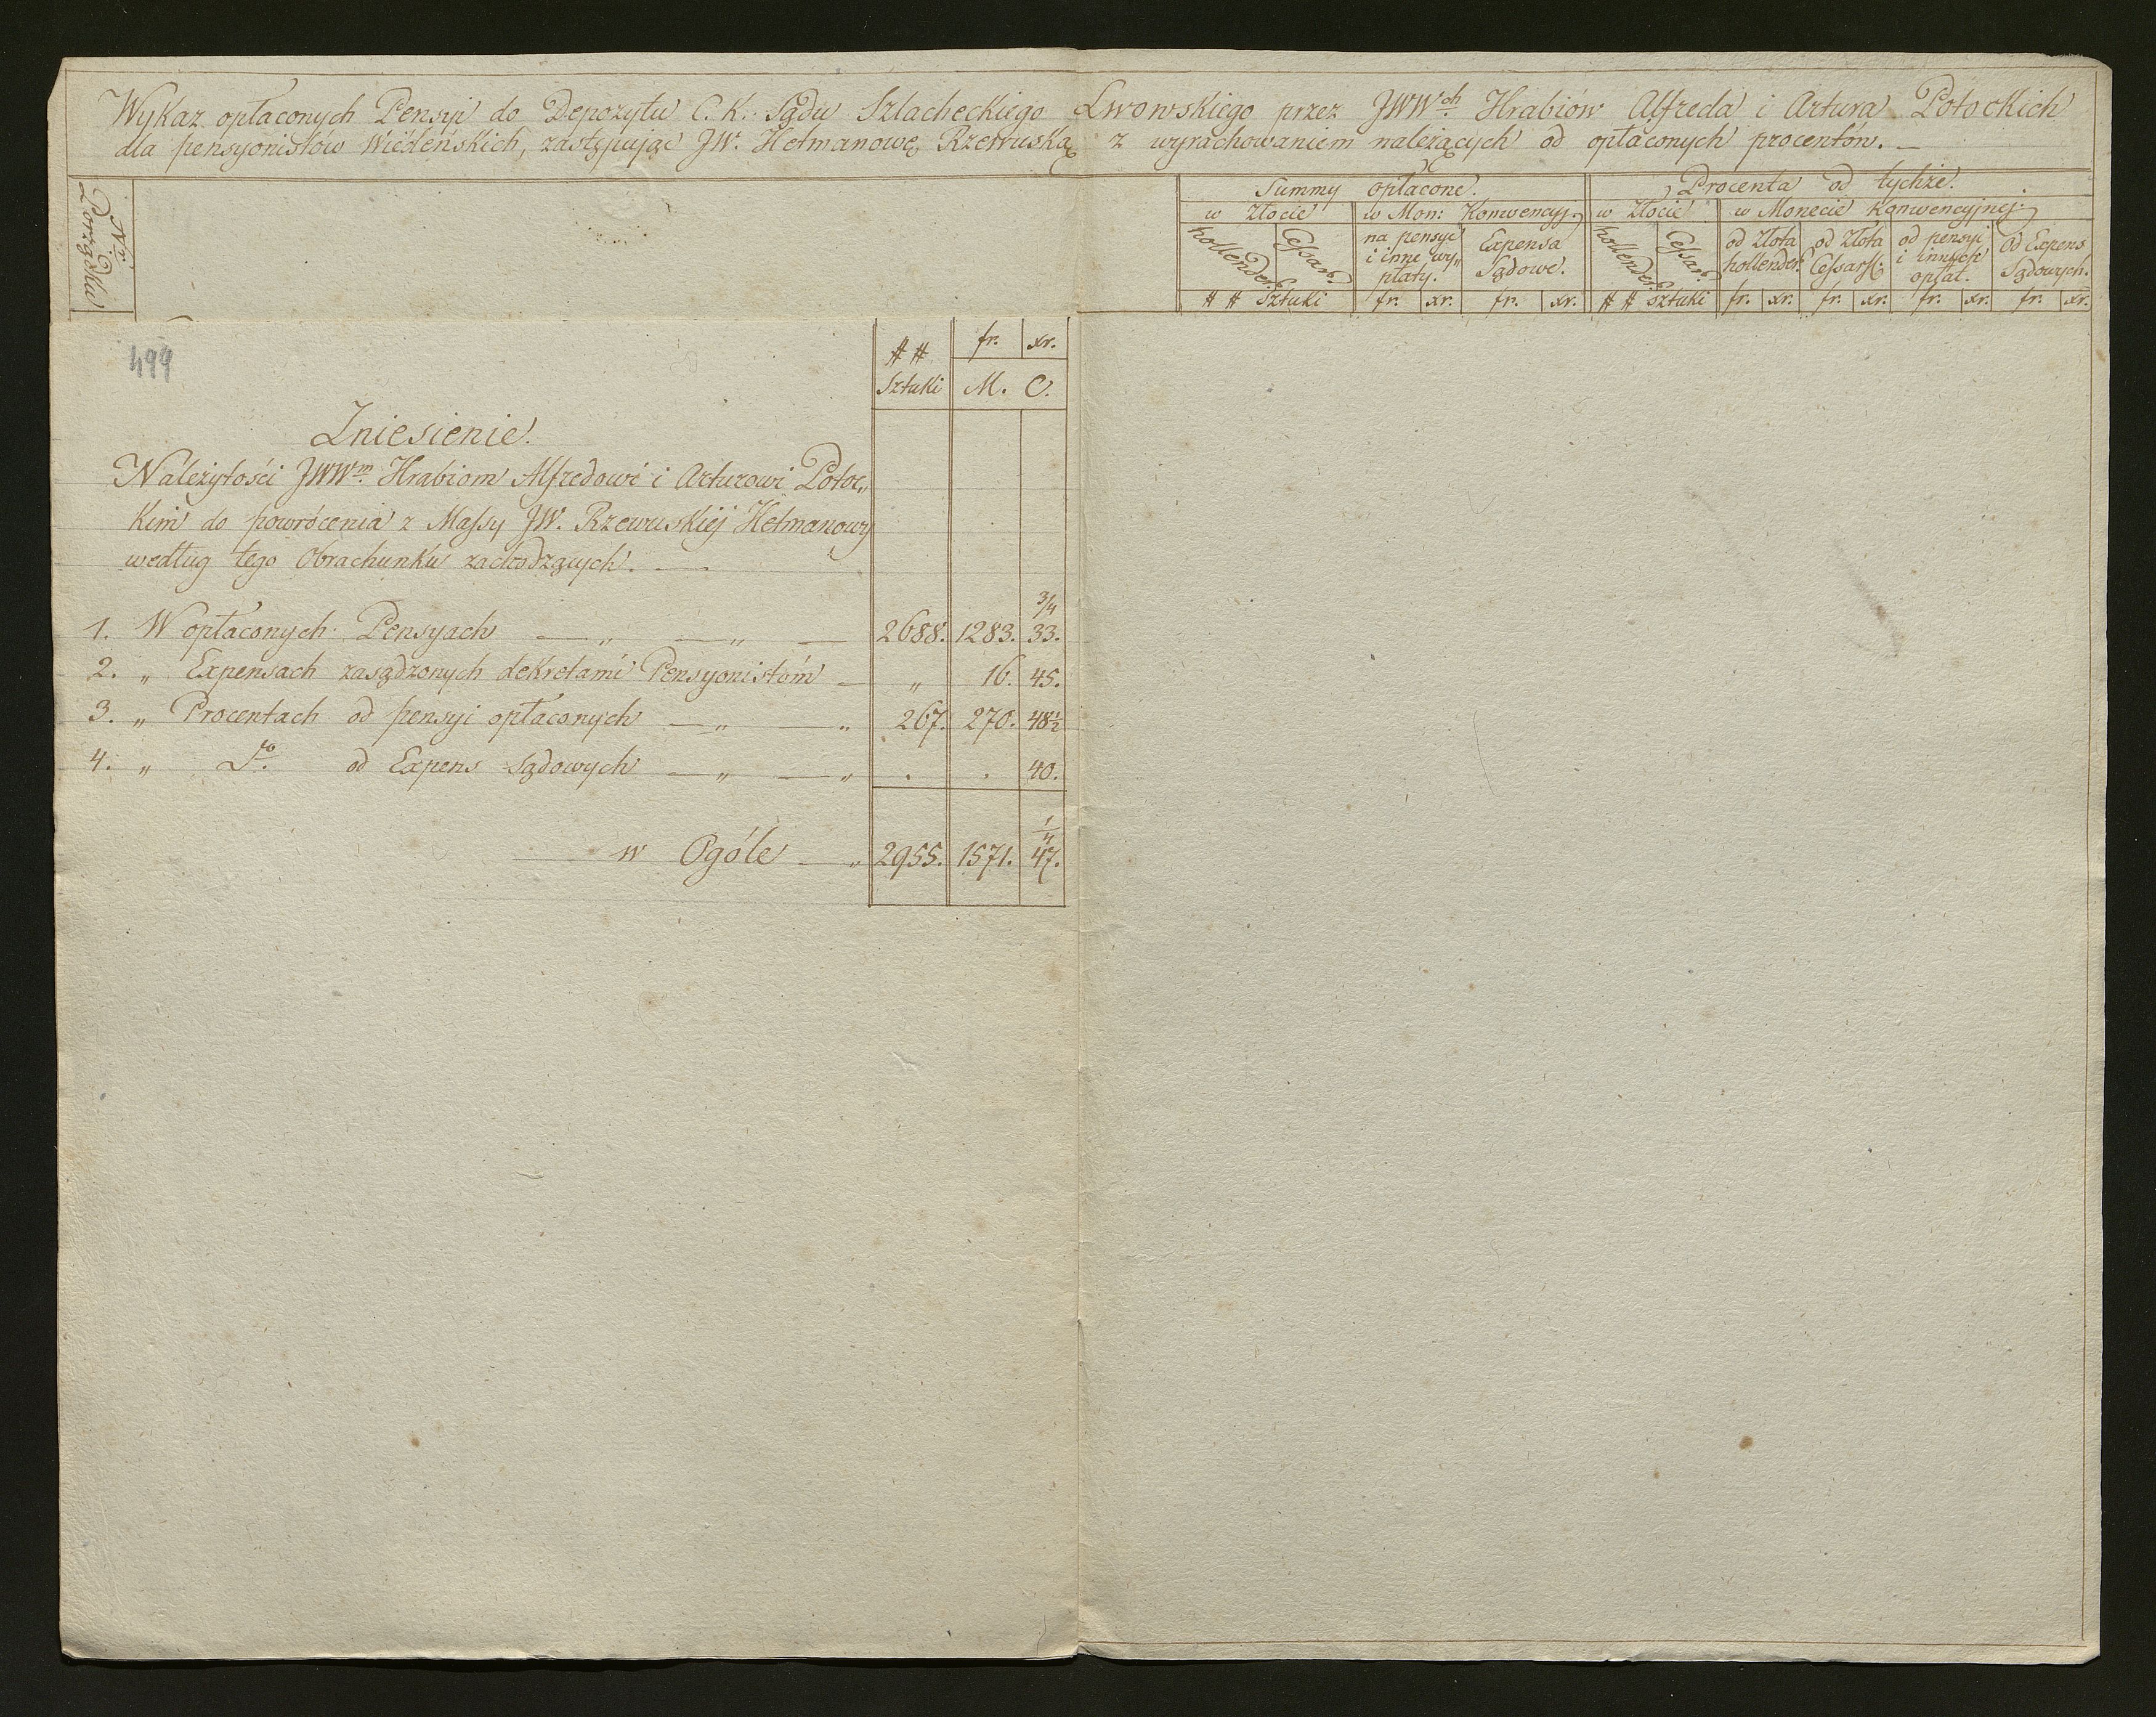 Wykaz opłaconych Pensyi do Depozytu C. K. Sądu Szlacheckiego Lwowskiego przez JWWch. Hrabiów Alfreda i Artura Potockich
dla pensyonistów Wiédeńskich, zastępując JW. Hetmanowę Rzewuską z wyrachowaniem należących od opłaconych procentów. —
Nr. Porządku
Summy opłacone.
Procenta od tychże.
w Złocie
w Mon: Konwencyj.
w Złocie
w Monecie Konwencyjnej.
hollender.
Cessars.
na pensye i inne wy„ płaty.
Expensa Sądowe.
hollender.
Cessar.
od Złota hollender.
od Złota Cessars.
od pensyi i innych opłat.
Od Expens Sądowych.
# # Sztuki
fr. xr. fr. xr.
# # Sztuki
fr. xr. fr. xr. fr. xr. fr. xr.
499
# # fr. xr.
Sztuki M. C.
Zniesienie.
Należytości JWWm. Hrabiom Alfredowi i Arturowi Potoc„
kim do powrócenia z Massy JW. Rzewuskiéj Hetmanowy
według tego Obrachunku zachodzących. —
1. W opłaconych Pensyach — „ — „ — 2688. 1283. 33. 3/4
2. „ Expensach zasądzonych dekretami Pensyonistóm — „ 16. 45.
3. „ Procentach od pensyi opłaconych — „ — „ 267. 270. 48 1/2
4. „ do. od Expens Sądowych — „ — „ . . 40.
w Ogóle — „ 2955. 1571. 47. 1/4